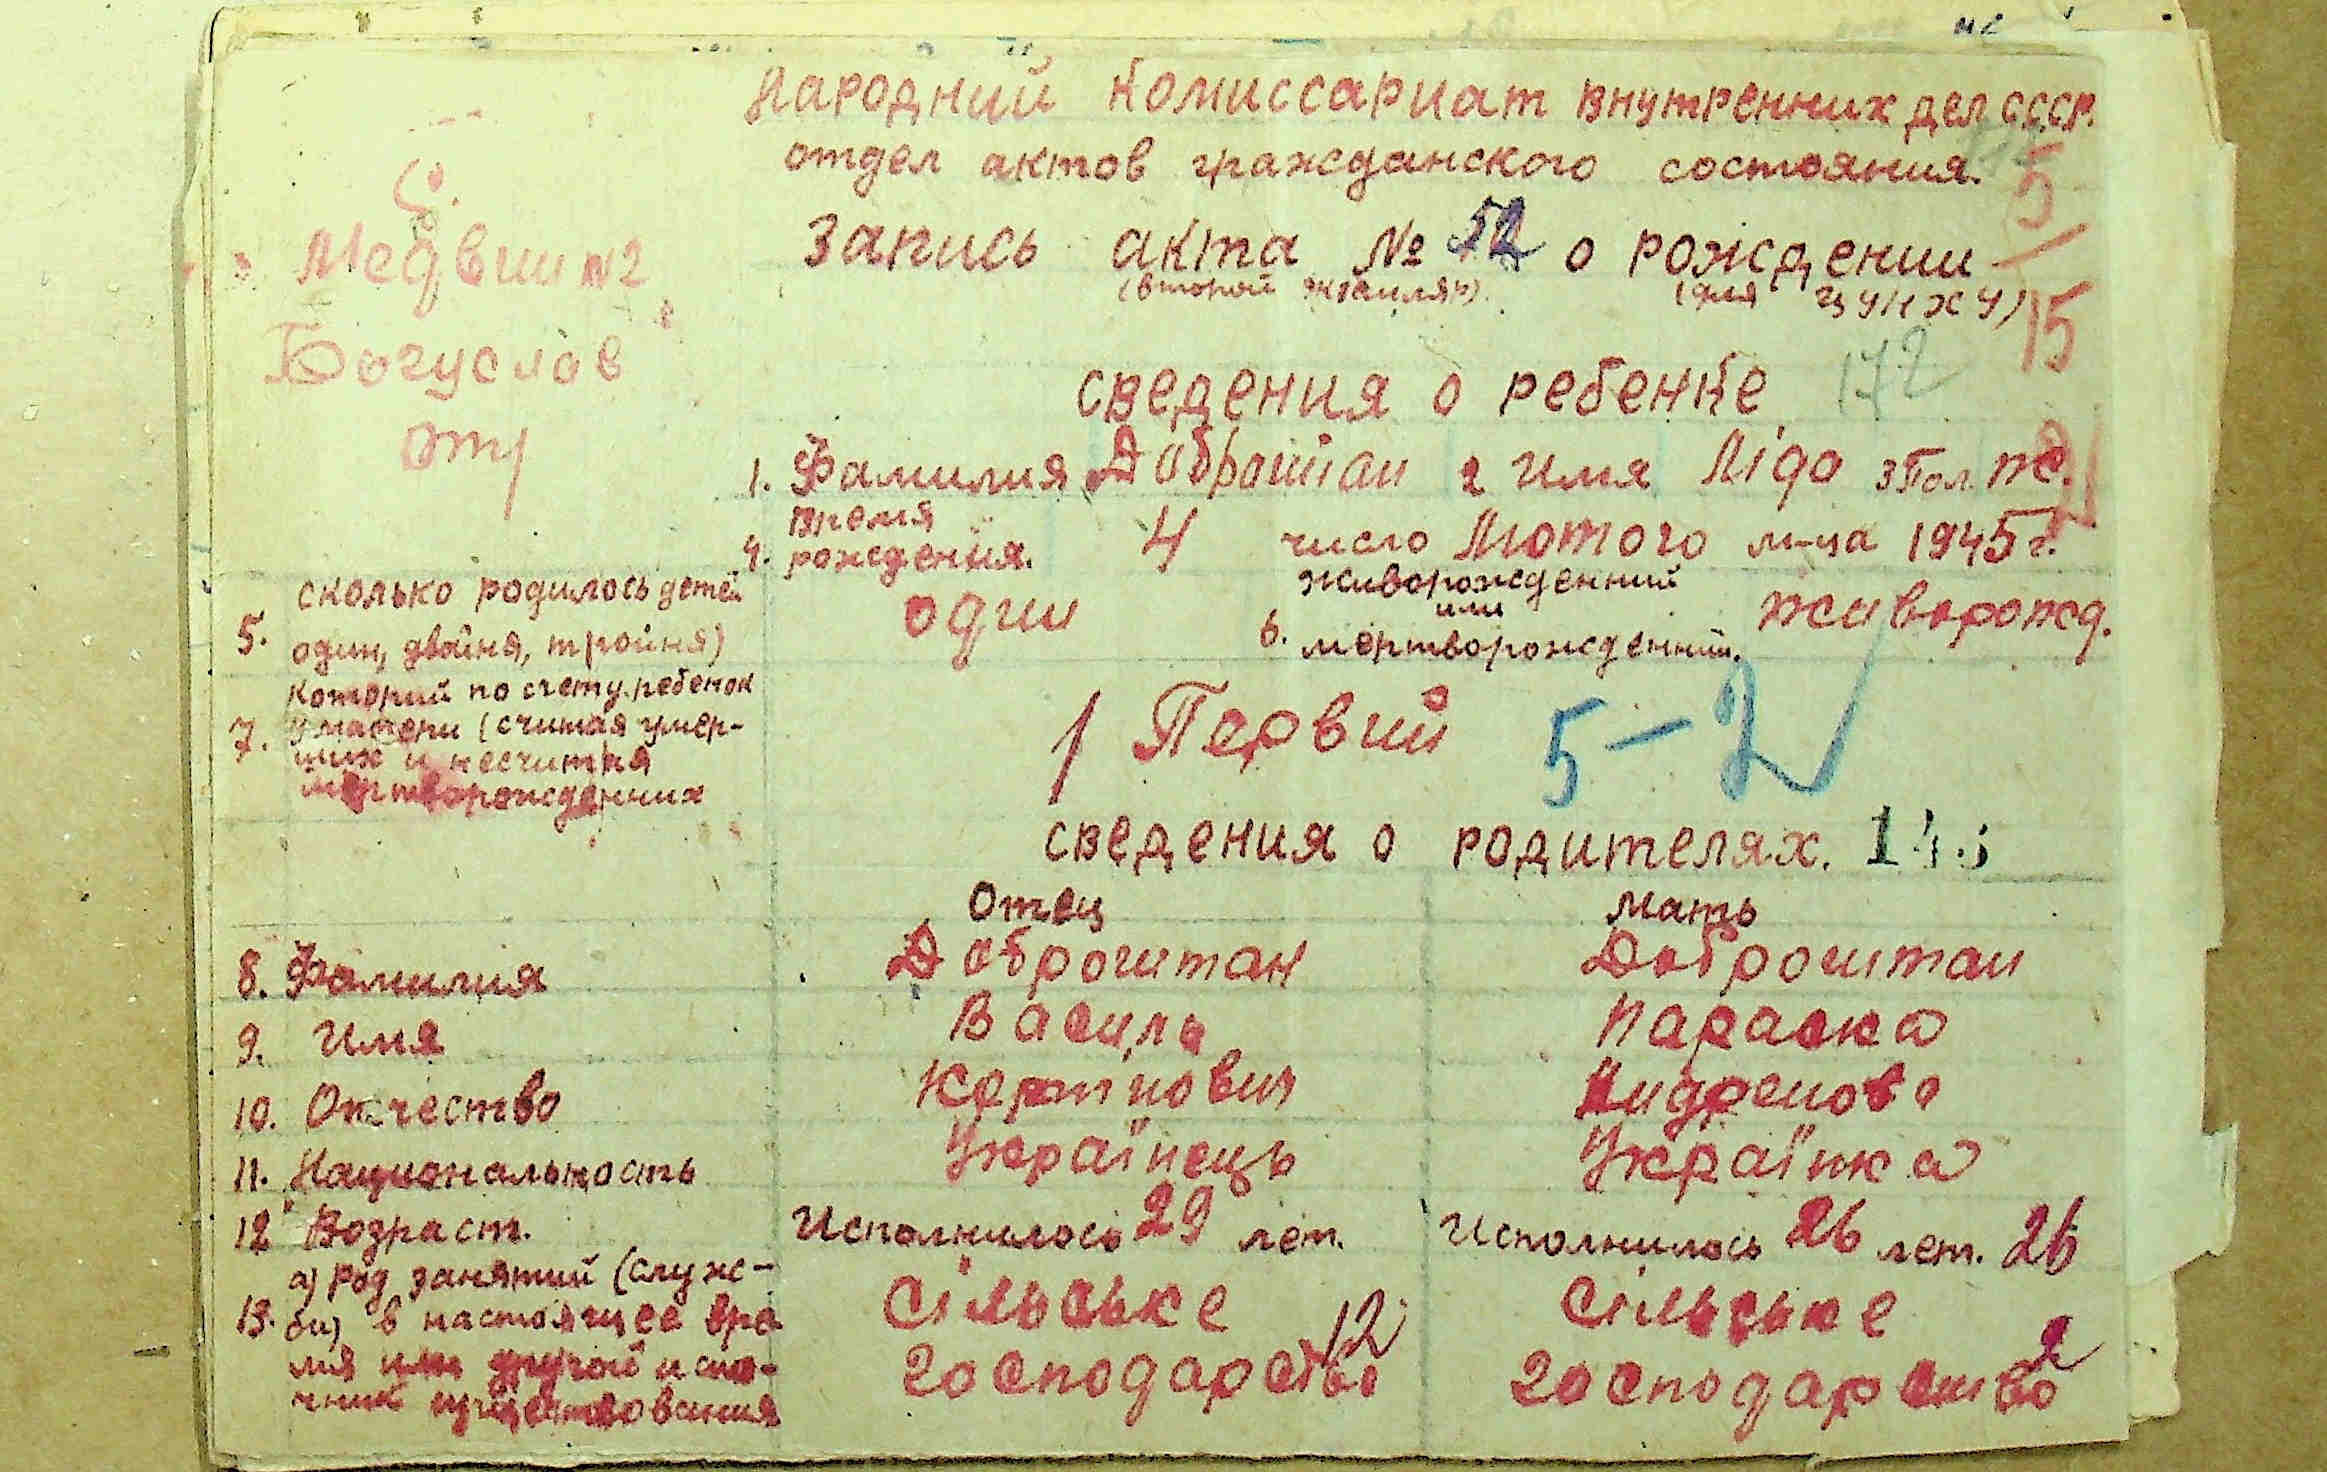 Народний Комиссариат внутренних дел СССР.
отдел актов гражданского состояния.
5/15
Запись акта № 52 о рождении
(второй экземпляр) (для ЦУНХУ)
С.
Медвин №2
Богуслав
от/
сведения о ребенке 172
1. Фамилия Доброштан 2 Имя Ліда 3 Пол ж.
4. Время рождения. 4 число Лютого м-ца 1945 г.
5. сколько родилось детей
один, двойня, тройня)
один
6. живорожденний
или
мертворожденний.
живорожд.
7. Которий по счету ребенок
у матери (считая умер-
ших и несчитая
мертворожденних
1 Первий 5-2
сведения о родителях.
Отец Мать
8. Фамилия Доброштан Доброштан
9. Имя Василь Параска
10. Отчество
11. Национальность Українець Українка
12 Возраст. Исполнилось 29 лет. Исполнилось 26 лет. 26
13. а) Род занятий (служ-
би) в настоящее вре
мя или другой исто-
чник существования
Сільське
господарство 12
Сільське
господарство 2